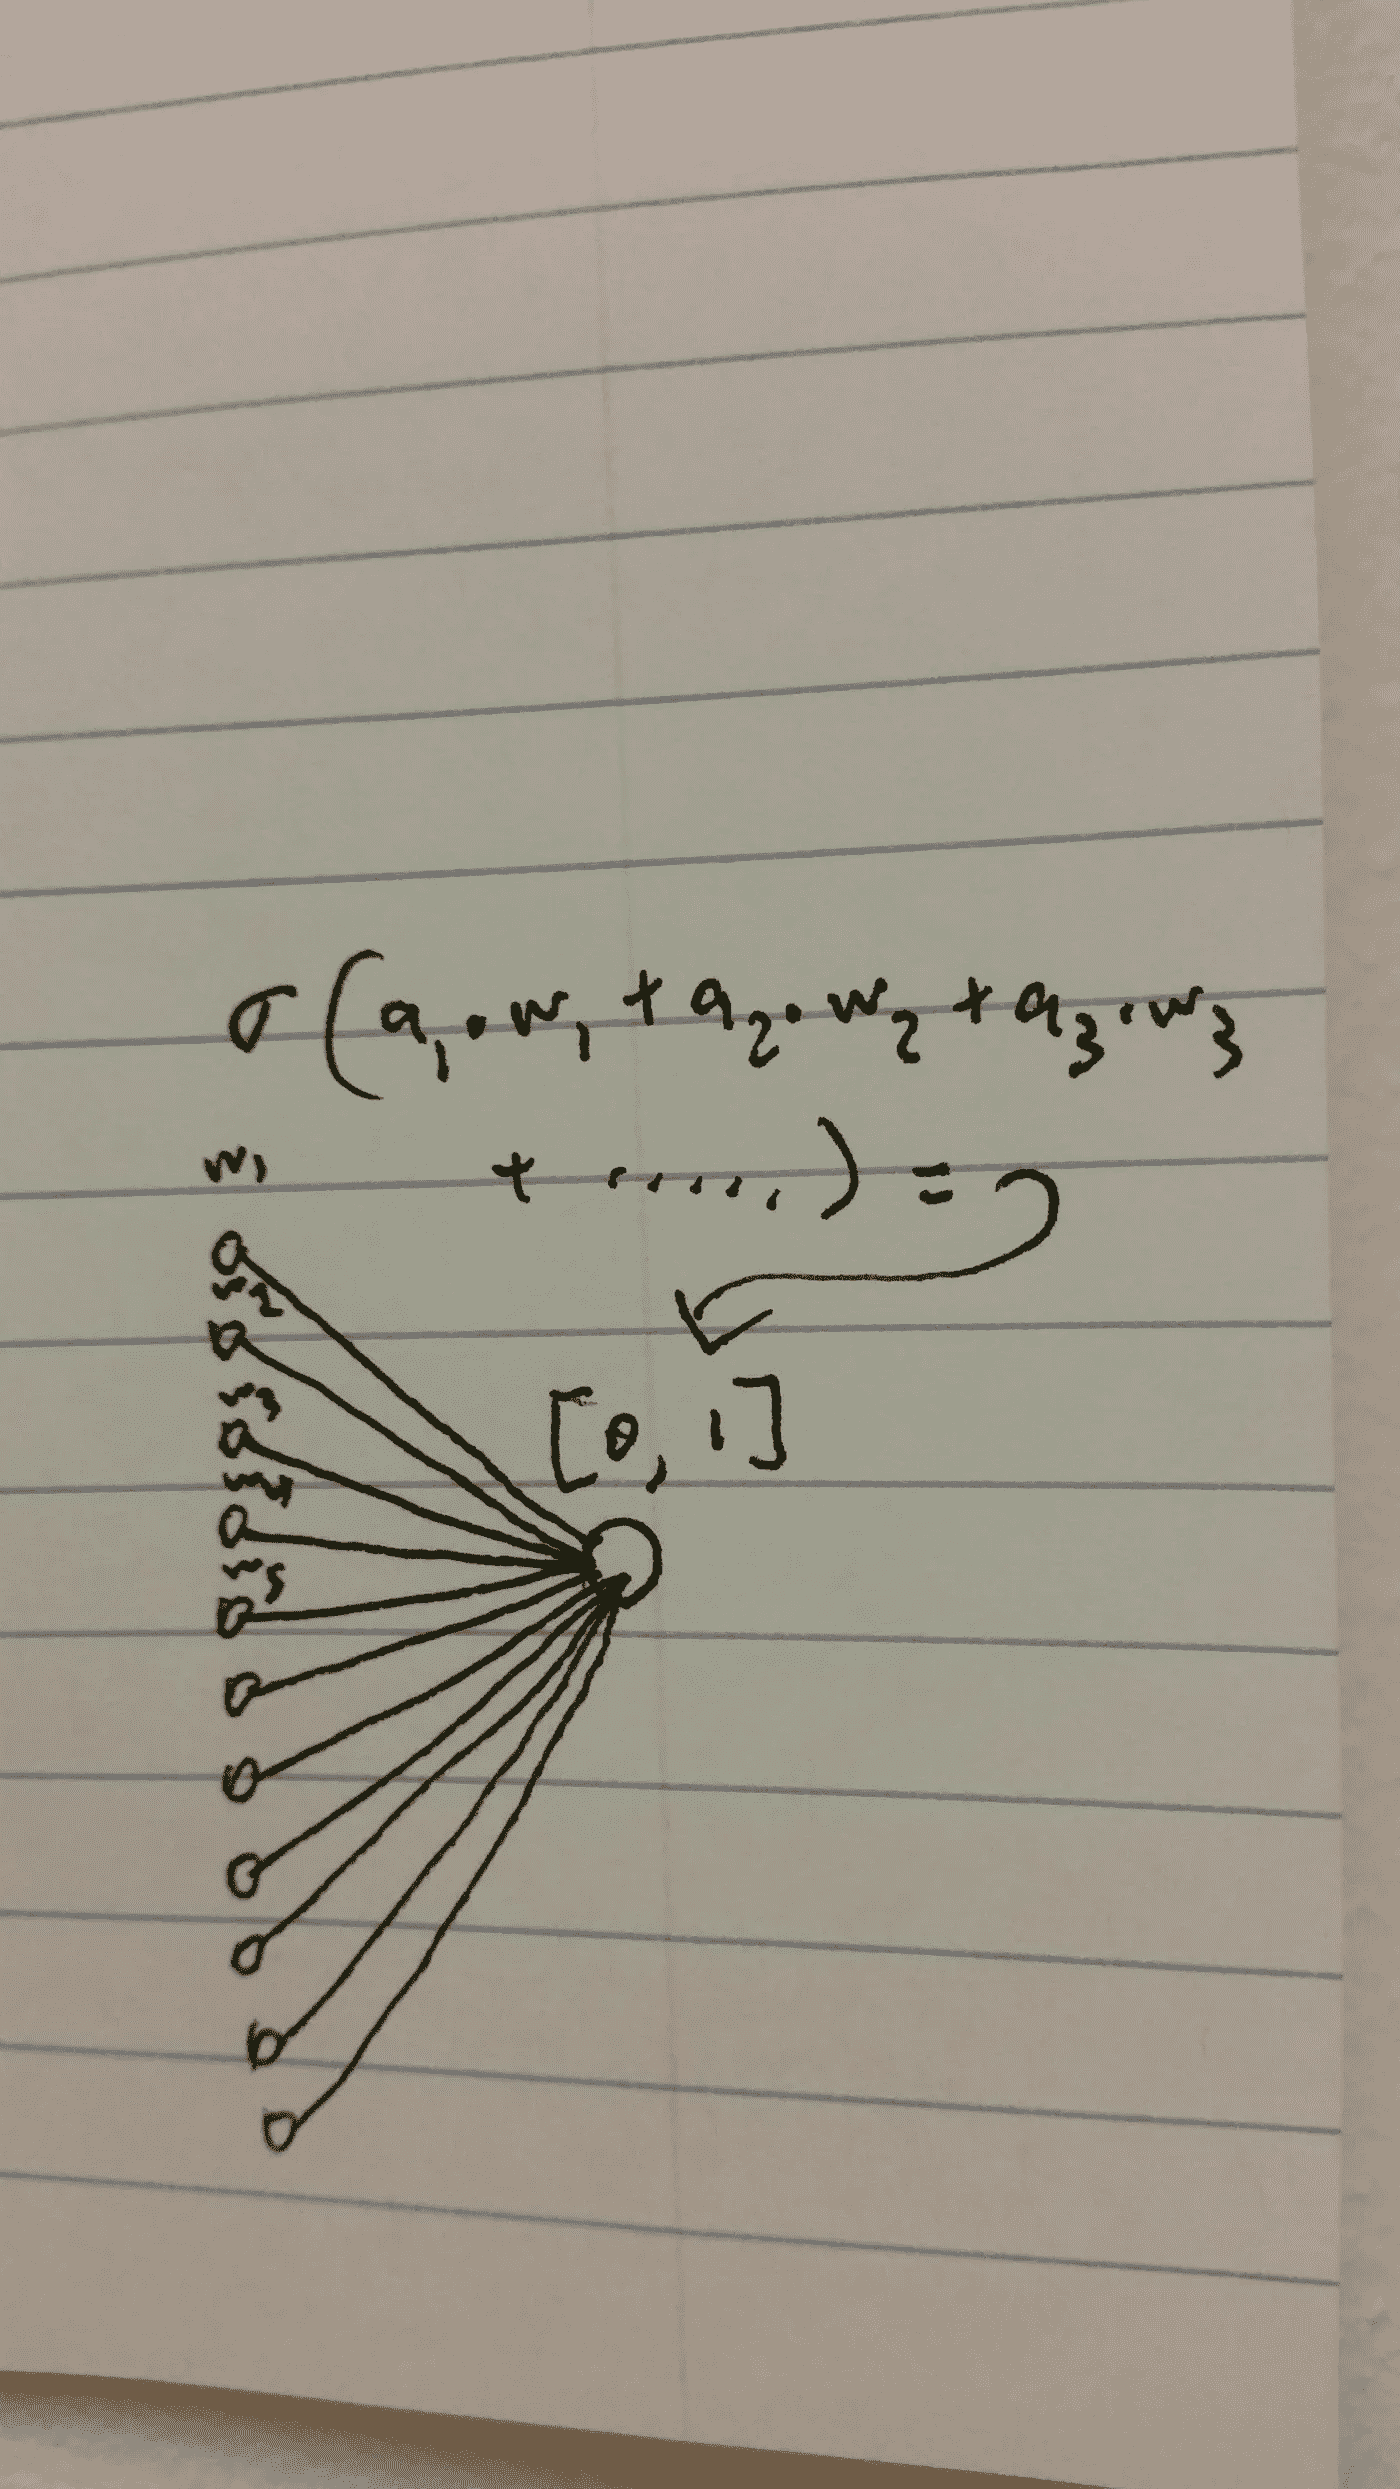 σ(a₁·w₁ + a₂·w₂ + a₃·w₃
+ .....) =
w₁
w₂
w₃
w₄
w₅
[0, 1]